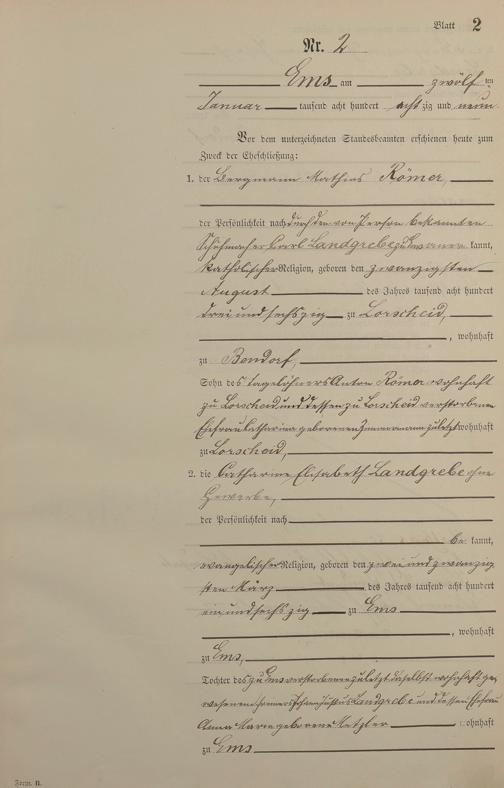 Blatt 2
Nr. 2
Ems am zwölf ten
Januar tausend acht hundert acht zig und neun
Vor dem unterzeichneten Standesbeamten erschienen heute zum
Zweck der Eheschließung:
1. der Bergmann Mathias Römer,
der Persönlichkeit nach durch den von Person bekannten
Schuhmacher Carl Landgrebe zu kannt,
katholischer Religion, geboren den zwanzigsten
August des Jahres tausend acht hundert
drei und sechszig zu Lorscheid,
, wohnhaft
zu Bendorf,
Sohn des Tagelöhners Anton Römer wohnhaft
zu Lorscheid und dessen zu Lorscheid verstorbenen
Ehefrau Catharina geborenen Zimmermann zuletzt wohnhaft
zu Lorscheid,
2. die Catharine Elisabeth Landgrebe ohne
Gewerbe,
der Persönlichkeit nach
be kannt,
evangelischer Religion, geboren den zwei und zwanzig
sten März des Jahres tausend acht hundert
ein und sechszig zu Ems
, wohnhaft
zu Ems,
Tochter des zu Ems verstorbenen zuletzt daselbst wohnhaft ge
wesenen Justus Landgrebe und dessen Ehefrau
Anna Marie geborene Metzler wohnhaft
zu Ems
Form. B.